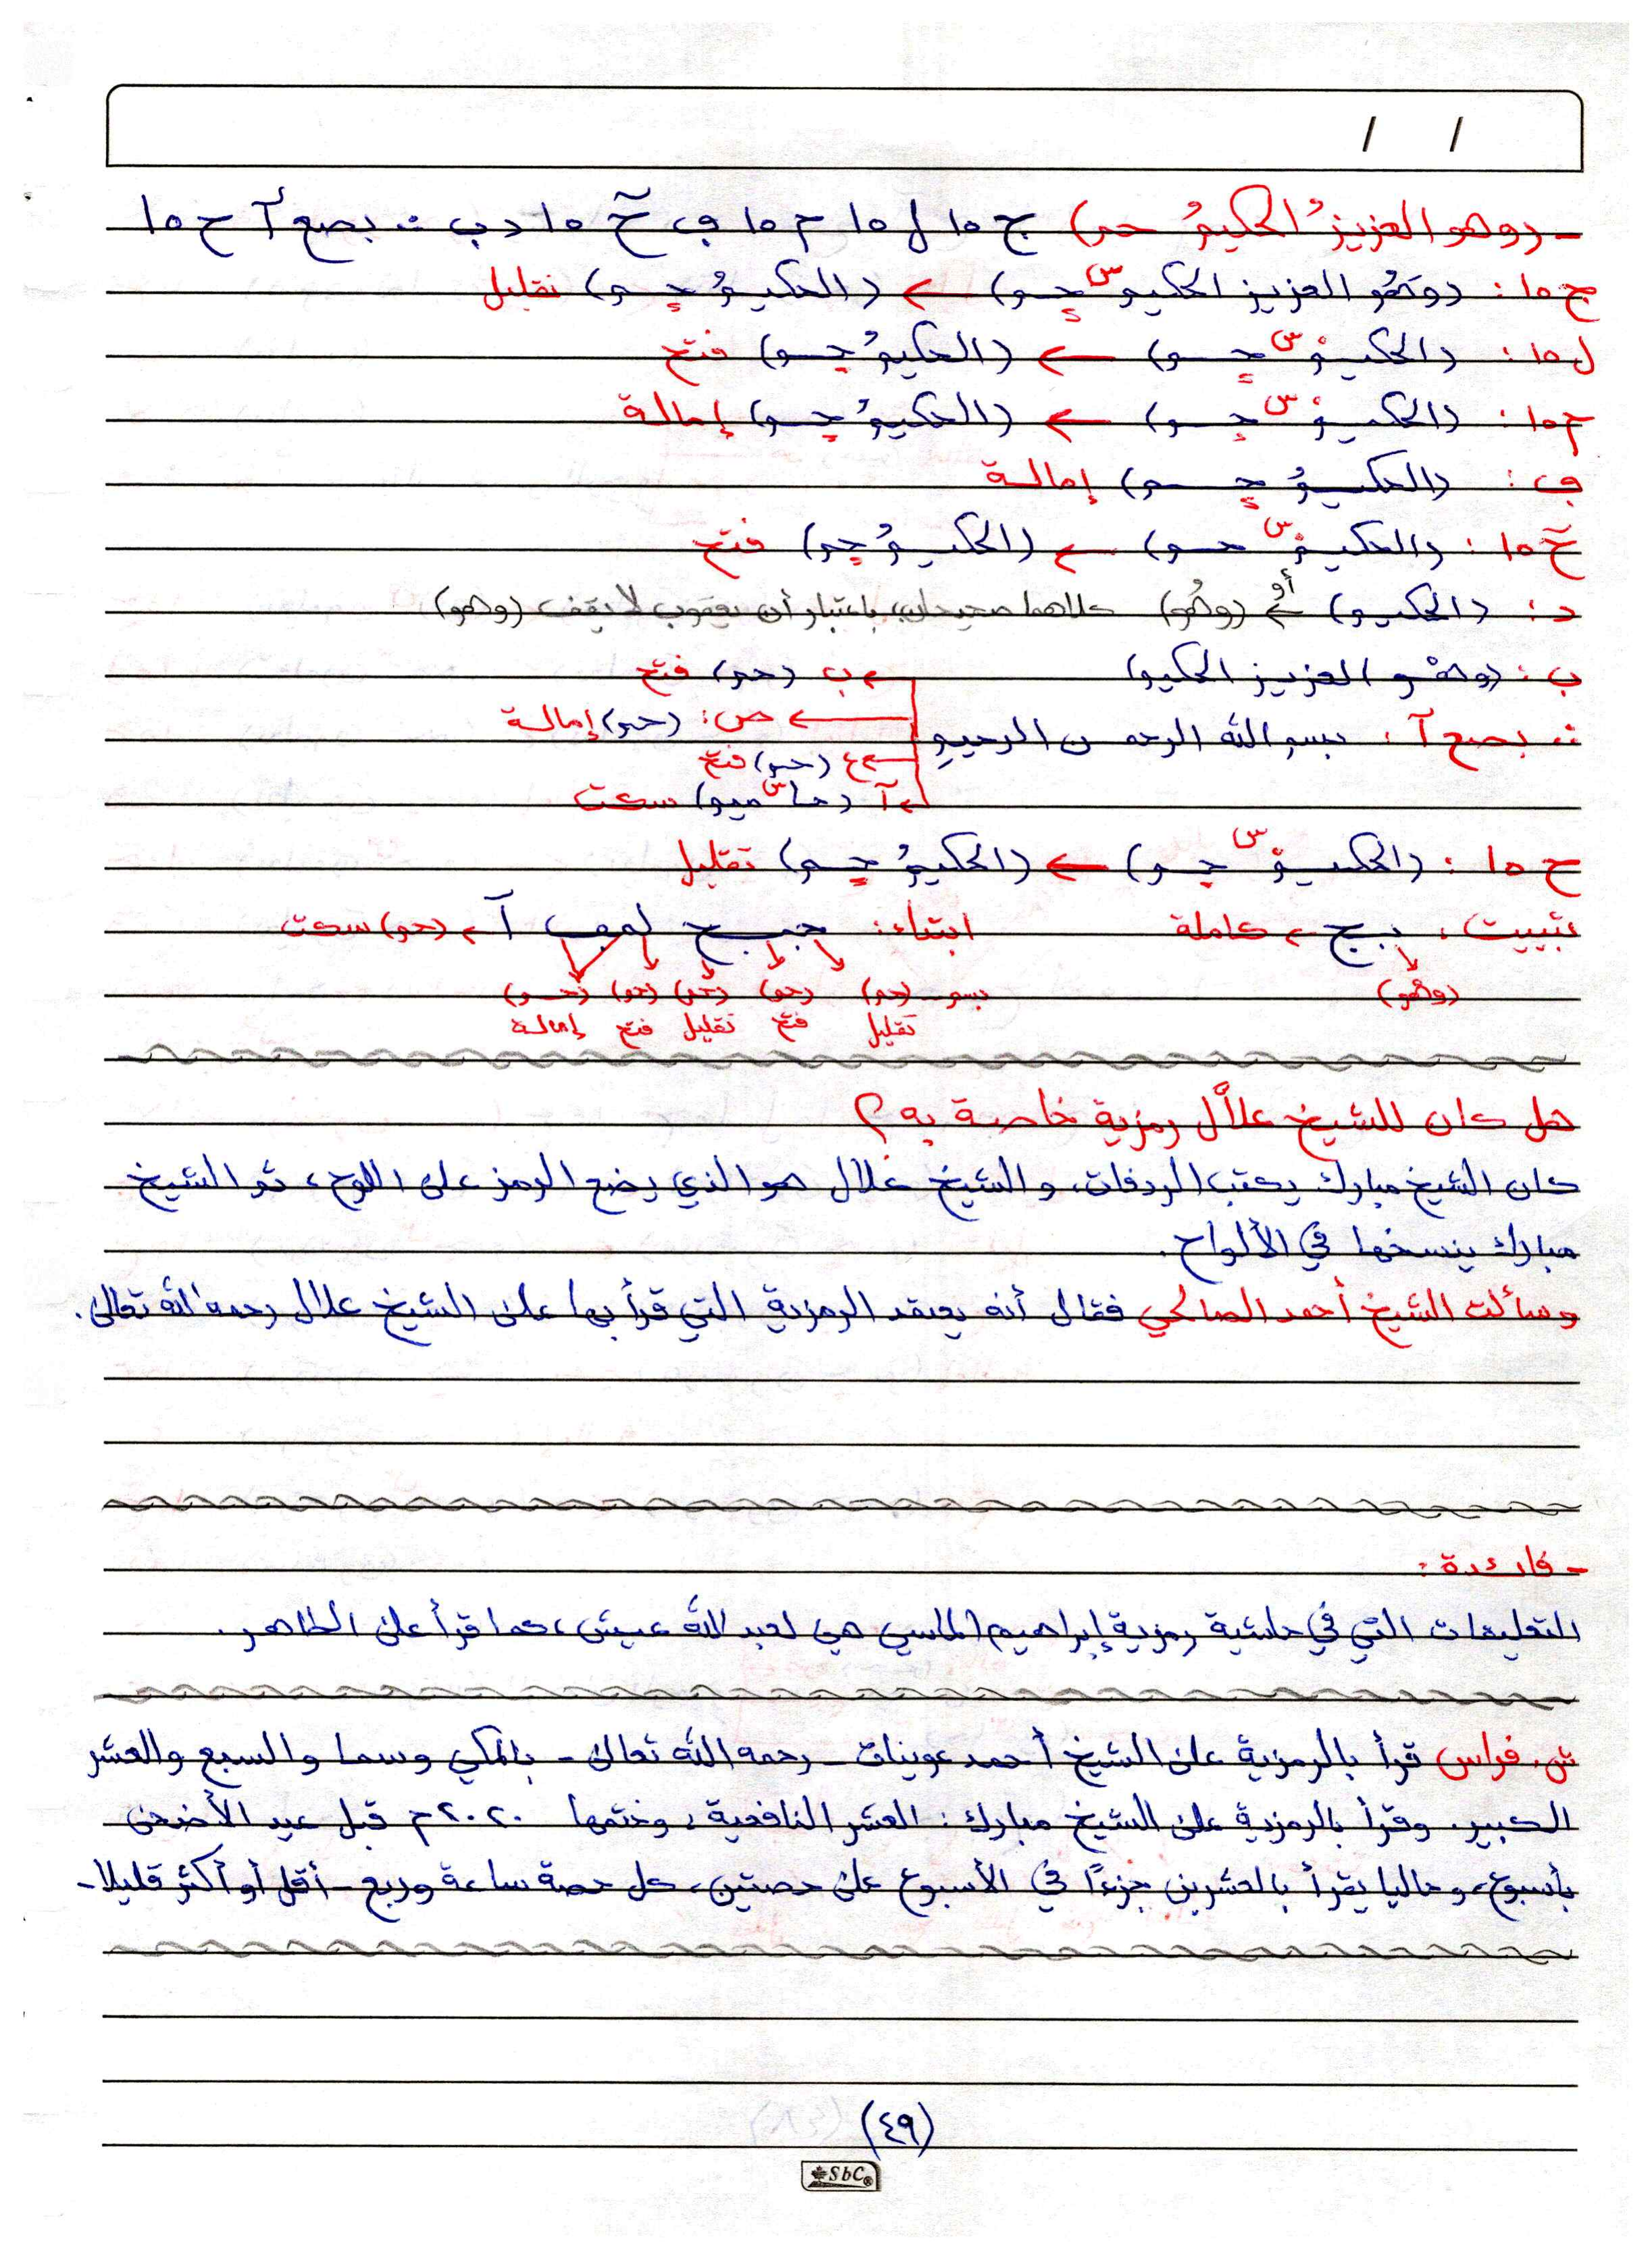 / /
- (وهو العزيزُ الحكيمُ حم) ج ١٥ ل ١٥ م ١٥ ف حٓ ١٥ د ب ∴ بصع آ ح ١٥
ج ١٥ : (وَهُو العزيز الحكيم س حم) ← (الحكيمُ حم) تقليل
ل ١٥ : (الحكيمْ س حم) ← (الحكيمُ حم) فتح
م ١٥ : (الحكيمْ س حم) ← (الحكيمُ حم) إمالة
ف : (الحكيمُ حم) إمالة
حٓ ١٥ : (الحكيمْ س حم) ← (الحكيمُ حم) فتح
د : (الحكيم) أو ← (وهُو) كلاهما صحيحان، باعتبار أن يعقوب لا يقف (وهو)
ب : (وهْو العزيز الحكيم)
← ب (حم) فتح
∴ بصع آ : بسم الله الرحمن الرحيمِ
← ص : (حم) إمالة
← ع (حم) فتح
← آ (حا س ميم) سكت
ح ١٥ : (الحكيمْ س حم) ← (الحكيمُ حم) تقليل
تثبيت : بج ← كاملة
ابتداء : جبح لموف آ ← (حم) سكت
(وهُو)
بسم - (حم) (حم) (حم) (حم) (حم)
تقليل فتح تقليل فتح إمالة
هل كان للشيخ علاَّل رمزية خاصة به ؟
كان الشيخ مبارك يكتب الردفات، والشيخ علال هو الذي يضع الرمز على اللوح، ثم الشيخ
مبارك ينسخها في الألواح.
وسألت الشيخ أحمد الصالحي فقال أنه يعتمد الرمزية التي قرأ بها على الشيخ علال رحمه الله تعالى.
- فائدة :
التعليقات التي في حاشية رمزية إبراهيم الماسي هي لعبد الله عيش، كما قرأ على الطاهر.
ش. فراس قرأ بالرمزية على الشيخ أحمد عوينات - رحمه الله تعالى - بالمكي وسما والسبع والعشر
الكبير. وقرأ بالرمزية على الشيخ مبارك : العشر النافعية، وختمها ٢٠٢٠م قبل عيد الأضحى
بأسبوع، وحاليا يقرأ بالعشرين جزءًا في الأسبوع على حصتين، كل حصة ساعة وربع - أقل أو أكثر قليلا-
(٤٩)
SbC